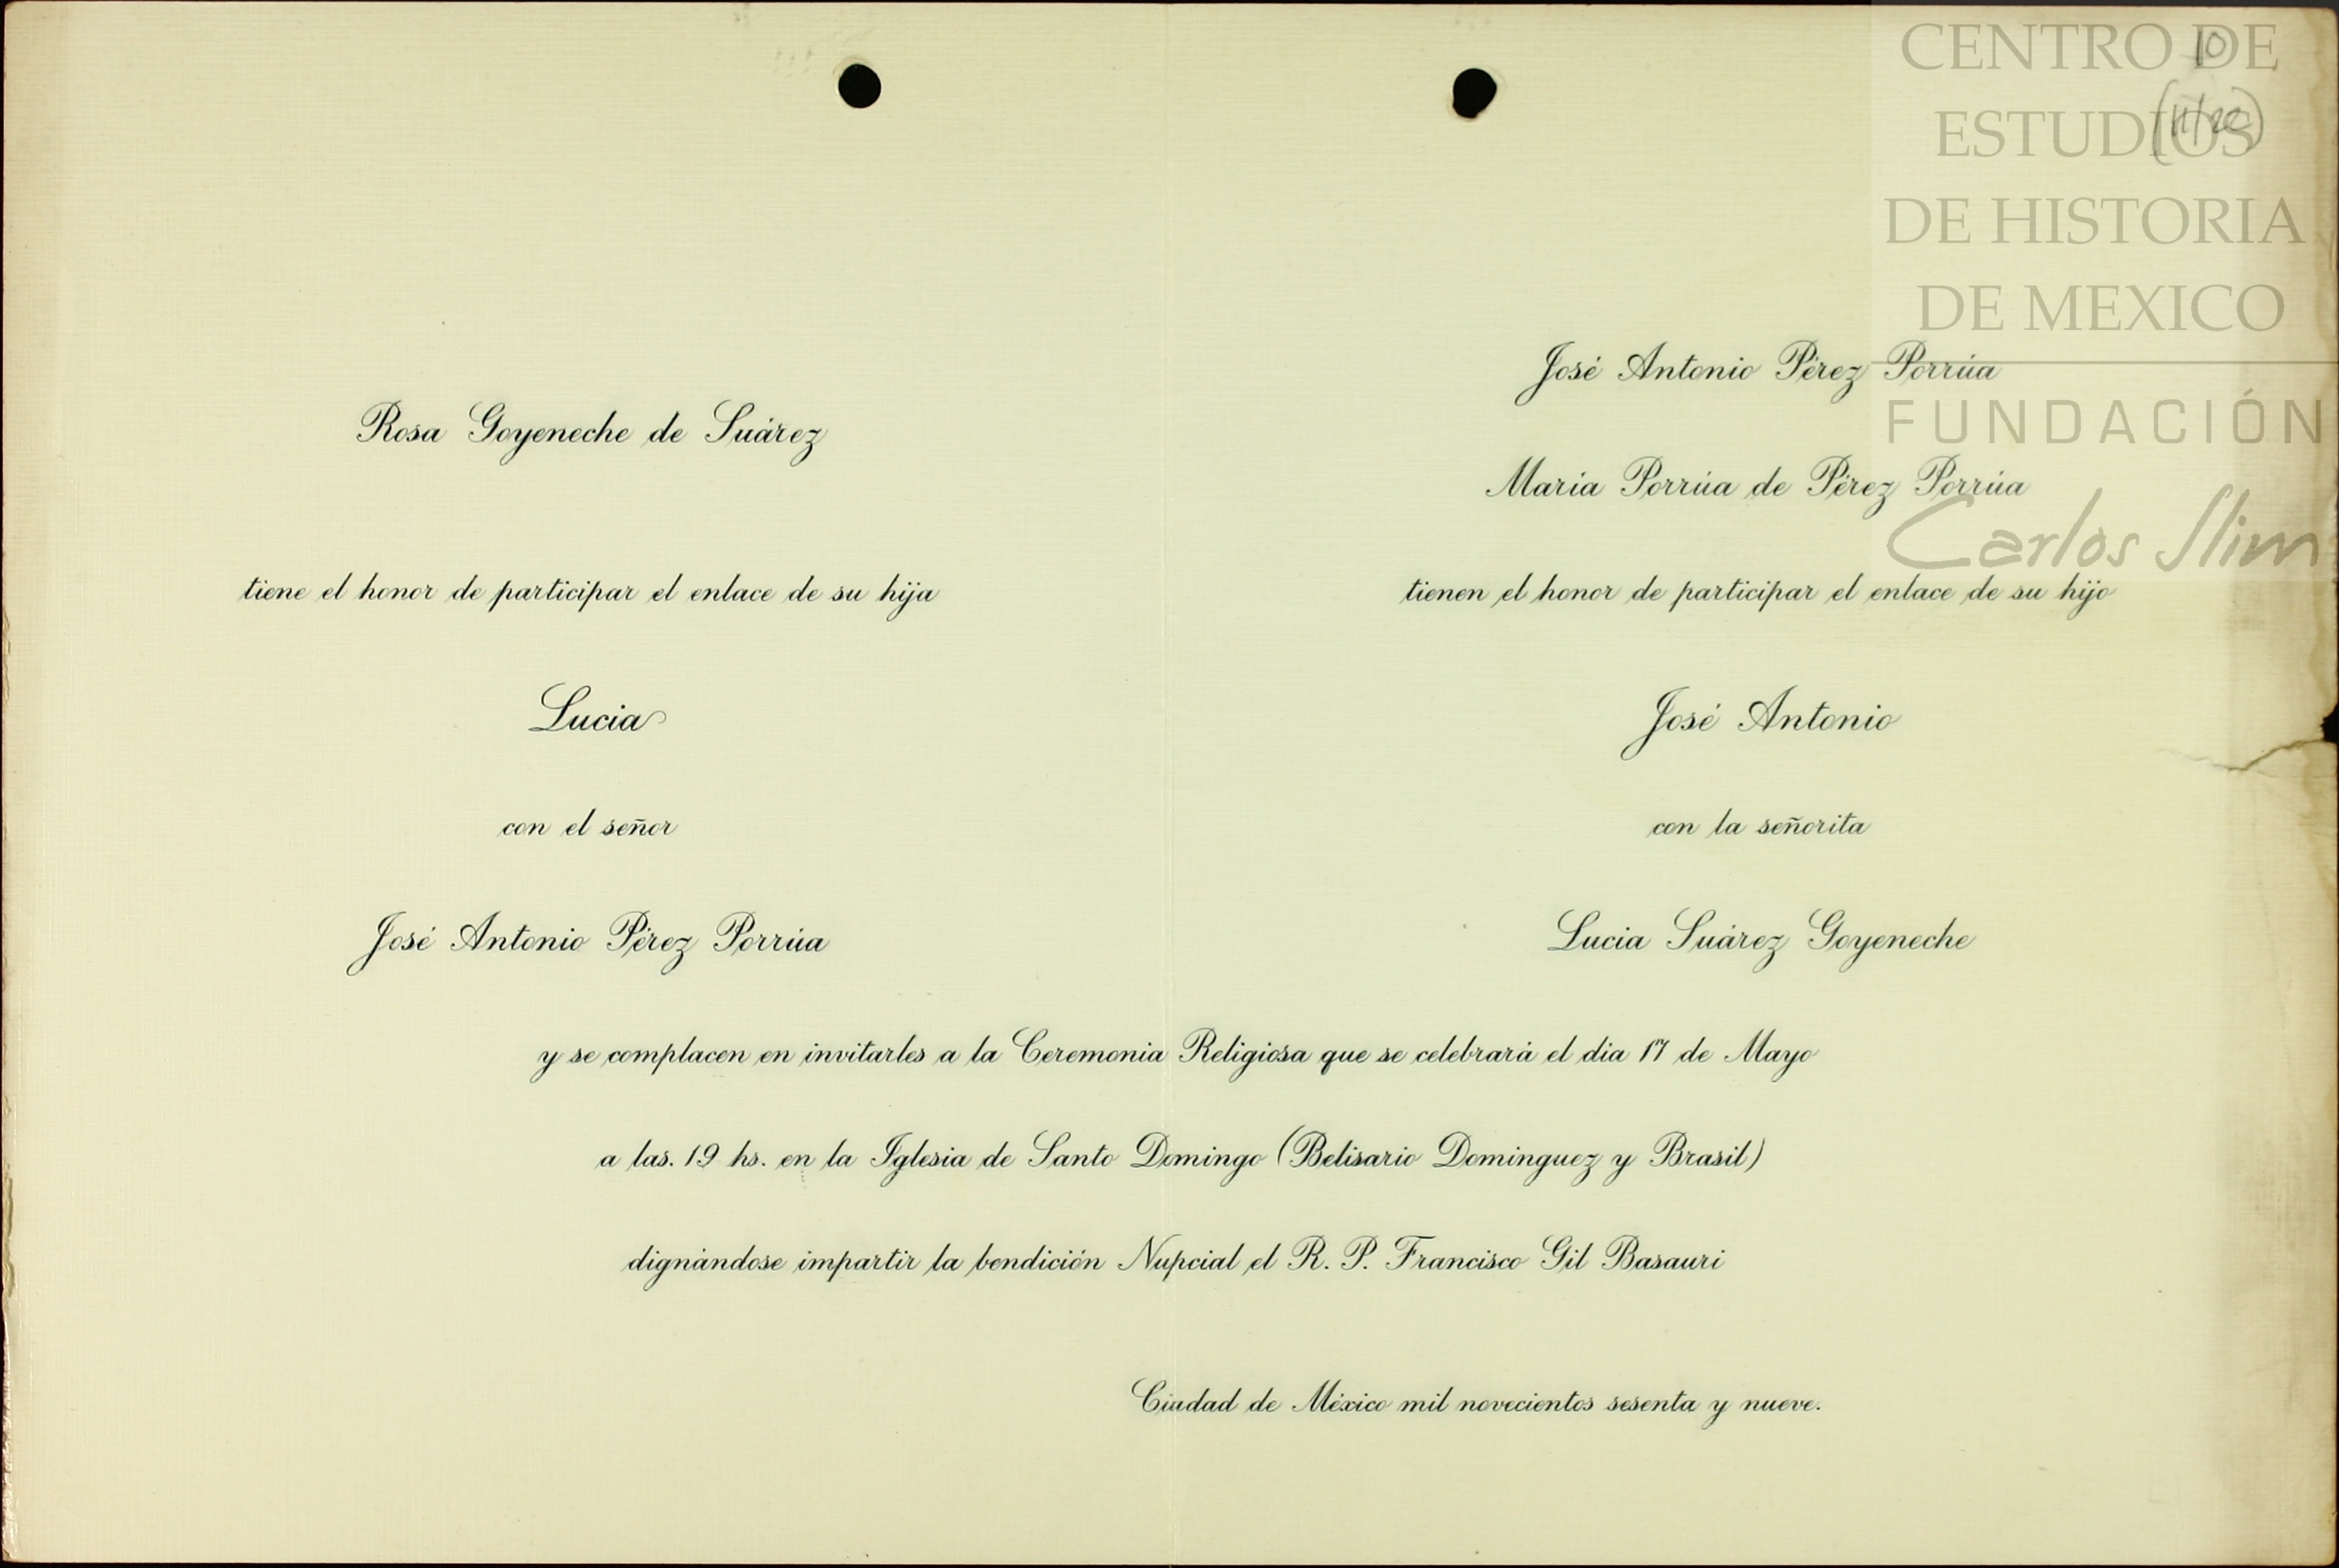 Rosa Goyeneche de Suárez
tiene el honor de participar el enlace de su hija
Lucia
con el señor
José Antonio Pérez Porrúa
José Antonio Pérez Porrúa
Maria Porrúa de Pérez Porrúa
tienen el honor de participar el enlace de su hijo
José Antonio
con la señorita
Lucia Suárez Goyeneche
y se complacen en invitarles a la Ceremonia Religiosa que se celebrará el dia 17 de Mayo
a las. 19 hs. en la Iglesia de Santo Domingo (Belisario Dominguez y Brasil)
dignándose impartir la bendición Nupcial el R. P. Francisco Gil Basauri
Ciudad de México mil novecientos sesenta y nueve.
CENTRO DE
ESTUDIOS
DE HISTORIA
DE MEXICO
FUNDACIÓN
Carlos Slim
10